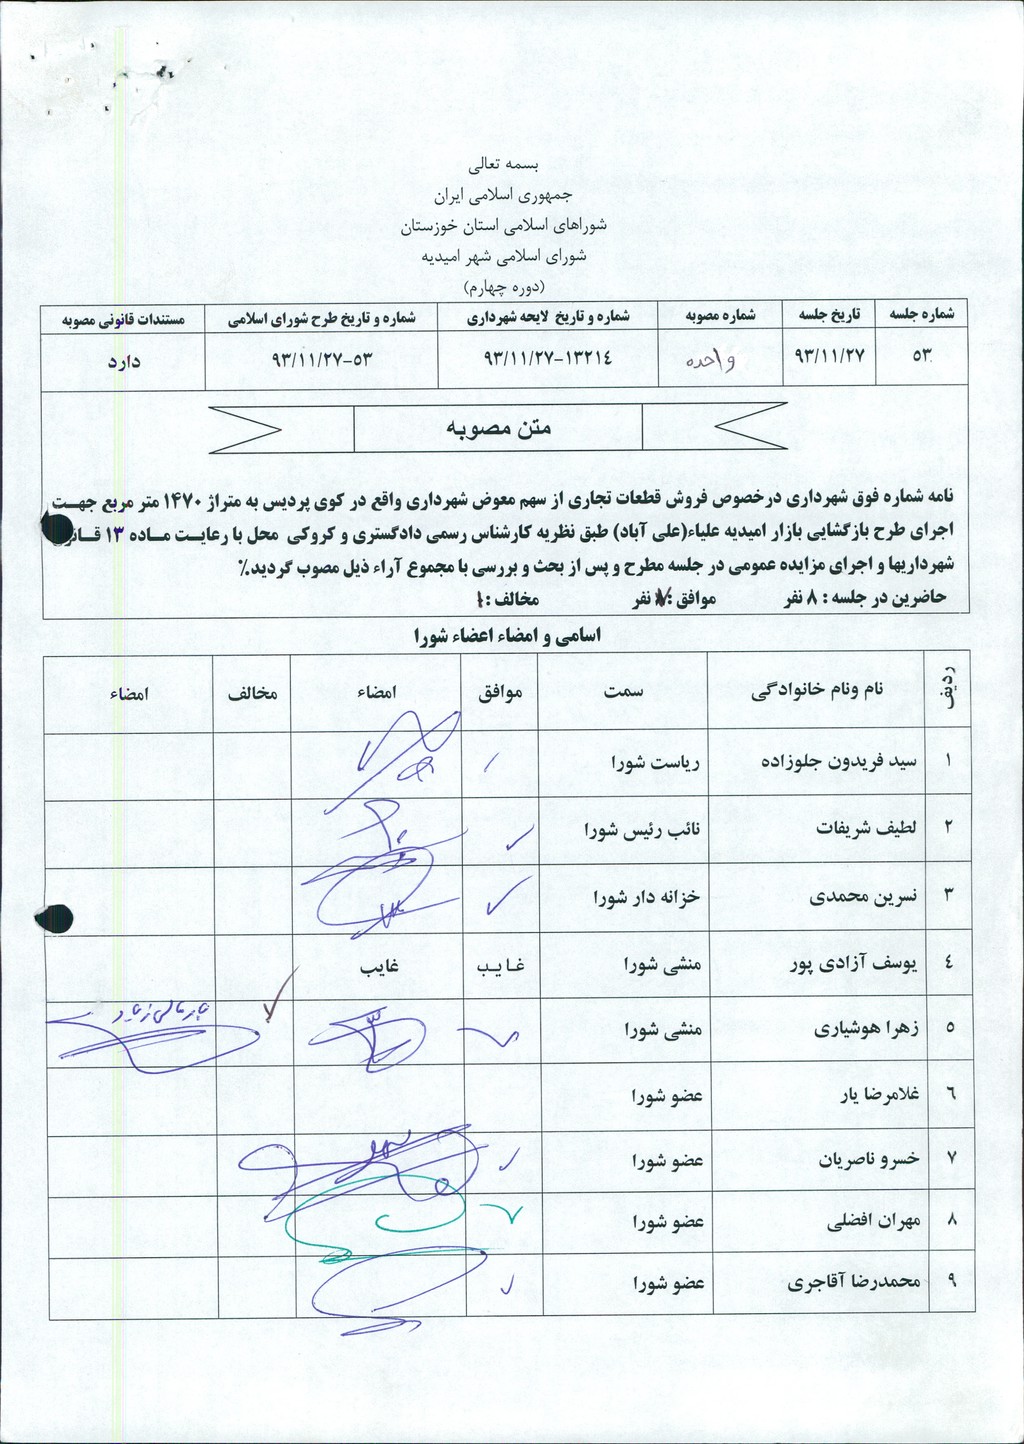 بسمه تعالی
جمهوری اسلامی ایران
شوراهای اسلامی استان خوزستان
شورای اسلامی شهر امیدیه
(دوره چهارم)
شماره جلسه تاریخ جلسه شماره مصوبه شماره و تاریخ لایحه شهرداری شماره و تاریخ طرح شورای اسلامی مستندات قانونی مصوبه
۵۳ ۹۳/۱۱/۲۷ واحده ۹۳/۱۱/۲۷-۱۳۲۱٤ ۹۳/۱۱/۲۷-۵۳ دارد
متن مصوبه
نامه شماره فوق شهرداری درخصوص فروش قطعات تجاری از سهم معوض شهرداری واقع در کوی پردیس به متراژ ۱۴۷۰ متر مربع جهت
اجرای طرح بازگشایی بازار امیدیه علیاء(علی آباد) طبق نظریه کارشناس رسمی دادگستری و کروکی محل با رعایت ماده ۱۳ قانون
شهرداریها و اجرای مزایده عمومی در جلسه مطرح و پس از بحث و بررسی با مجموع آراء ذیل مصوب گردید.٪
حاضرین در جلسه : ۸ نفر موافق :۷ نفر مخالف :۱
اسامی و امضاء اعضاء شورا
ردیف نام ونام خانوادگی سمت موافق امضاء مخالف امضاء
۱ سید فریدون جلوزاده ریاست شورا
۲ لطیف شریفات نائب رئیس شورا
۳ نسرین محمدی خزانه دار شورا
٤ یوسف آزادی پور منشی شورا غایب غایب
۵ زهرا هوشیاری منشی شورا
٦ غلامرضا یار عضو شورا
۷ خسرو ناصریان عضو شورا
۸ مهران افضلی عضو شورا
۹ محمدرضا آقاجری عضو شورا